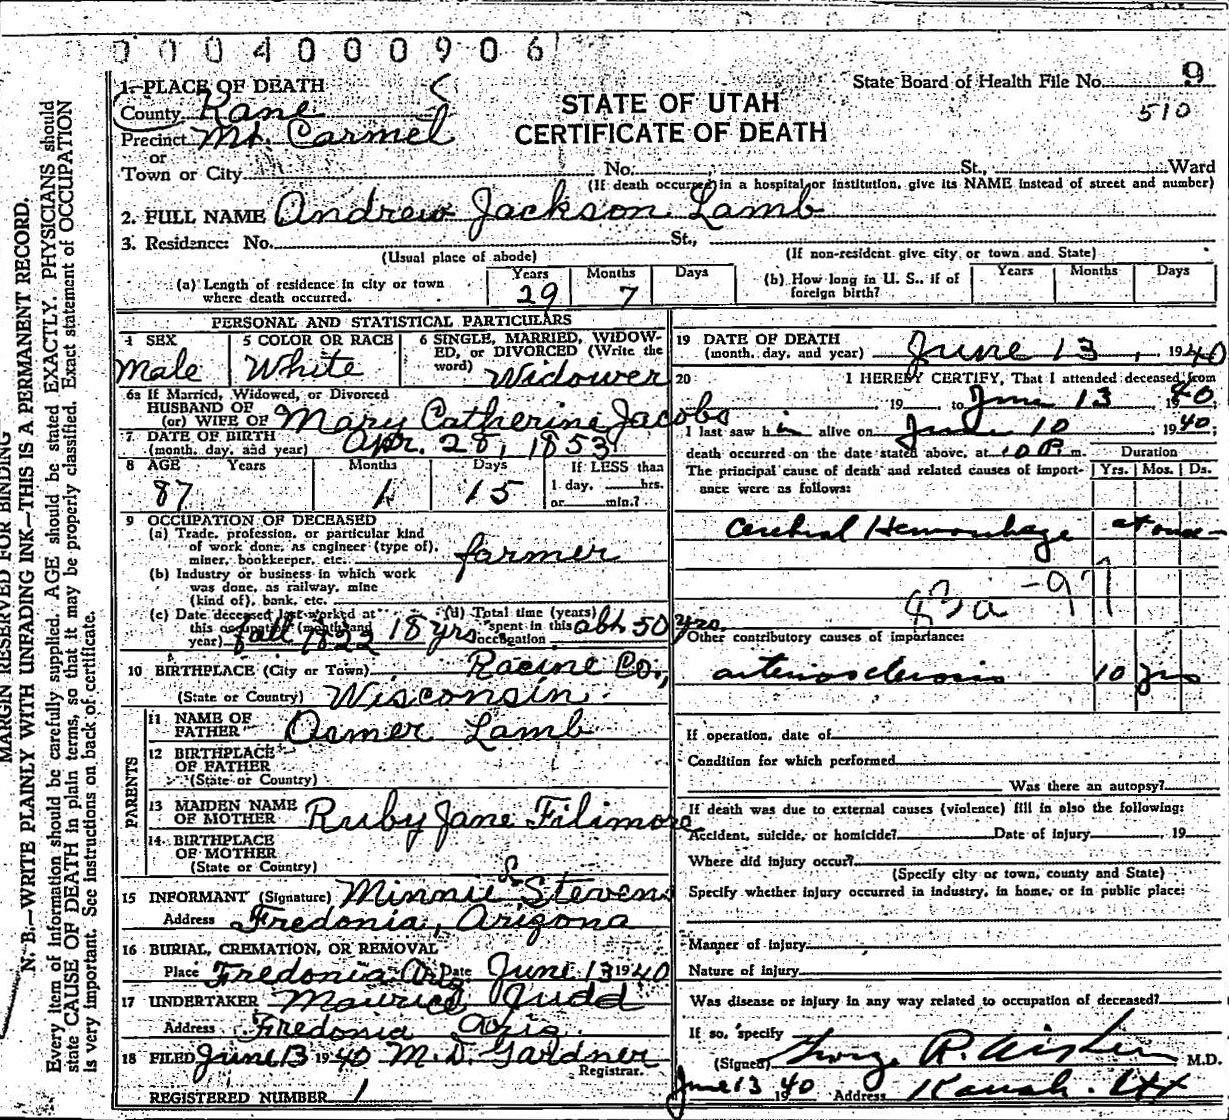 0004000906
State Board of Health File No. 9
510
STATE OF UTAH
CERTIFICATE OF DEATH
1. PLACE OF DEATH
County Kane
Precinct Mt. Carmel
or
Town or City No. St., Ward
(If death occurred in a hospital or institution, give its NAME instead of street and number)
2. FULL NAME Andrew Jackson Lamb
3. Residence: No. St.,
(Usual place of abode) (If non-resident give city or town and State)
(a) Length of residence in city or town where death occurred. Years 29 Months 7 Days
(b) How long in U. S., if of foreign birth? Years Months Days
PERSONAL AND STATISTICAL PARTICULARS
4 SEX Male
5 COLOR OR RACE White
6 SINGLE, MARRIED, WIDOWED, or DIVORCED (Write the word) Widower
6a If Married, Widowed, or Divorced
HUSBAND OF
(or) WIFE OF Mary Catherine Jacobs
7 DATE OF BIRTH
(month, day, and year) Apr. 28, 1853
8 AGE Years 87 Months 1 Days 15 If LESS than 1 day, hrs. or min.?
9 OCCUPATION OF DECEASED
(a) Trade, profession, or particular kind
of work done, as engineer (type of),
miner, bookkeeper, etc. farmer
(b) Industry or business in which work
was done, as railway, mine
(kind of), bank, etc.
(c) Date deceased last worked at
this occupation (month and
year) fall 1922 18 yrs
(d) Total time (years)
spent in this
occupation abt 50 yrs.
10 BIRTHPLACE (City or Town) Racine Co.,
(State or Country) Wisconsin.
PARENTS
11 NAME OF
FATHER Osmer Lamb
12 BIRTHPLACE
OF FATHER
(State or Country)
13 MAIDEN NAME
OF MOTHER Ruby Jane Filimore
14 BIRTHPLACE
OF MOTHER
(State or Country)
15 INFORMANT (Signature) Minnie L Stevens
Address Fredonia, Arizona
16 BURIAL, CREMATION, OR REMOVAL
Place Fredonia Ariz Date June 13 1940
17 UNDERTAKER Maurice Judd
Address Fredonia Ariz.
18 FILED June 13 1940 M. D. Gardner
Registrar.
REGISTERED NUMBER 1
19 DATE OF DEATH
(month, day, and year) June 13, 1940
20 I HEREBY CERTIFY, That I attended deceased from
19 to June 13 1940.
I last saw him alive on June 10 1940,
death occurred on the date stated above, at 10 P. m.
The principal cause of death and related causes of importance were as follows:
Duration
Yrs. Mos. Ds.
Cerebral Hemorrhage at once
83a-97
Other contributory causes of importance:
arteriosclerosis 10 yrs
If operation, date of
Condition for which performed
Was there an autopsy?
If death was due to external causes (violence) fill in also the following:
Accident, suicide, or homicide? Date of injury 19
Where did injury occur?
(Specify city or town, county and State)
Specify whether injury occurred in industry, in home, or in public place:
Manner of injury
Nature of injury
Was disease or injury in any way related to occupation of deceased?
If so, specify
(Signed) George R. Aiken M.D.
June 13 1940 Address Kanab. Utah
MARGIN RESERVED FOR BINDING
N. B.—WRITE PLAINLY WITH UNFADING INK—THIS IS A PERMANENT RECORD.
Every item of information should be carefully supplied. AGE should be stated EXACTLY. PHYSICIANS should
state CAUSE OF DEATH in plain terms, so that it may be properly classified. Exact statement of OCCUPATION
is very important. See instructions on back of certificate.